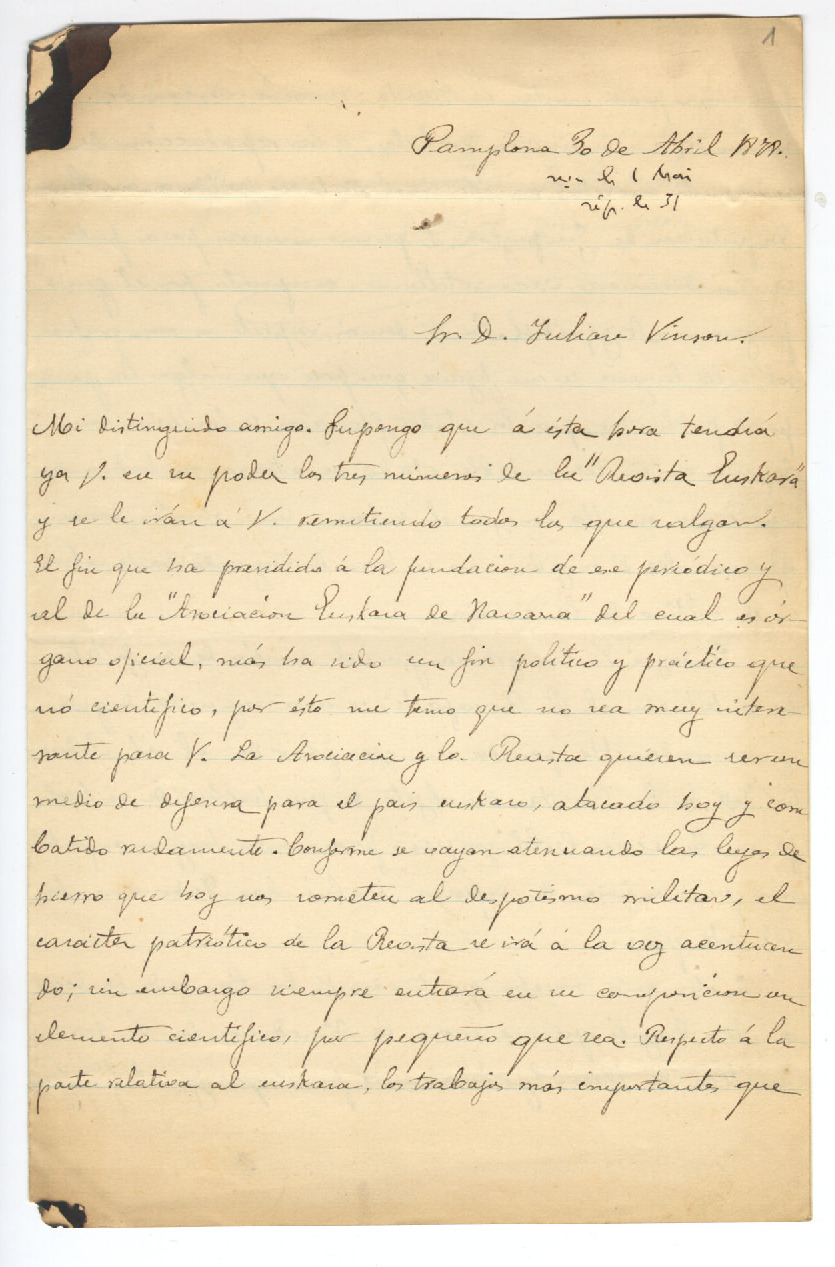 1
Pamplona 30 de Abril 1878.
rép. le 31
Sr. D. Julian Vinson.
Mi distinguido amigo. Supongo que á ésta hora tendrá
ya V. en su poder los tres números de la "Revista Euskara"
y se le irán á V. remitiendo todos los que salgan.
El fin que ha presidido á la fundacion de ese periódico y
al de la "Asociación Euskara de Navarra" del cual es ór-
gano oficial, más ha sido un fin político y práctico que
nó científico, por ésto me temo que no sea muy intere-
sante para V. La Asociacion y la Revista quieren ser un
medio de defensa para el pais euskaro, atacado hoy y com
batido rudamente. Conforme se vayan atenuando las leyes de
hierro que hoy nos someten al despotismo militar, el
carácter patriótico de la Revista se irá á la vez acentuan
do; sin embargo siempre entrará en su composicion un
elemento científico, por pequeño que sea. Respecto á la
parte relativa al euskara, los trabajos más importantes que